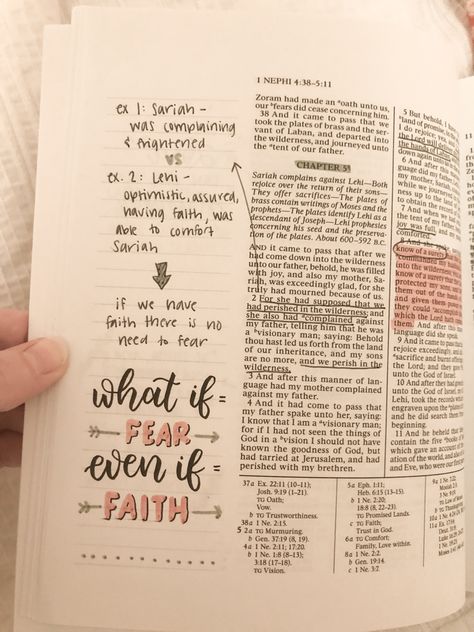 1 NEPHI 4:38–5:11
ex 1: Sariah –
was complaining
& frightened
vs
ex. 2: Lehi –
optimistic, assured,
having faith, was
able to comfort
Sariah
if we have
faith there is no
need to fear
what if =
FEAR
even if =
FAITH
Zoram had made an ᵃoath unto us,
our ᵇfears did cease concerning him.
38 And it came to pass that we
took the plates of brass and the ser-
vant of Laban, and departed into
the wilderness, and journeyed unto
the ᵃtent of our father.
CHAPTER 5
Sariah complains against Lehi—Both
rejoice over the return of their sons—
They offer sacrifices—The plates of
brass contain writings of Moses and the
prophets—The plates identify Lehi as a
descendant of Joseph—Lehi prophesies
concerning his seed and the preserva-
tion of the plates. About 600–592 B.C.
AND it came to pass that after we
had come down into the wilderness
unto our father, behold, he was filled
with joy, and also my mother, Sa-
riah, was exceedingly glad, for she
truly had mourned because of us.
2 For she had supposed that we
had perished in the wilderness; and
she also had ᵃcomplained against
my father, telling him that he was
a ᵇvisionary man; saying: Behold
thou hast led us forth from the land
of our inheritance, and my sons
are no more, and we perish in the
wilderness.
3 And after this manner of lan-
guage had my mother complained
against my father.
4 And it had come to pass that
my father spake unto her, saying:
I know that I am a ᵃvisionary man;
for if I had not seen the things of
God in a ᵇvision I should not have
known the goodness of God, but
had tarried at Jerusalem, and had
perished with my brethren.
5 But behold, I
ᵃland of promise,
I do rejoice; yea,
the Lord will deliver
the hands of Laban
down again unto
6 And after this
guage did my father
my mother, Sariah
while we journeyed
ness up to the land
to obtain the record
7 And when we
the tent of my father
joy was full, and
comforted.
8 And she spake,
know of a surety
commanded my
into the wilderness
know of a surety that
protected my sons,
them out of the hands
and given them power
they could ᵃaccomp
which the Lord hath
them. And after this
language did she speak.
9 And it came to pass
rejoice exceedingly, and
ᵃsacrifice and burnt offering
the Lord; and they gave
unto the God of Israel.
10 And after they had given
unto the God of Israel,
Lehi, took the records
engraven upon the ᵃplates of
and he did search them
beginning.
11 And he beheld that they
contain the five ᵃbooks of M
which gave an account of
ation of the world, and also of
and Eve, who were our first
37a Ex. 22:11 (10–11);
Josh. 9:19 (1–21).
TG Oath;
Vow.
b TG Trustworthiness.
38a 1 Ne. 2:15.
5 2a TG Murmuring.
b Gen. 37:19 (8, 19).
4a 1 Ne. 2:11; 17:20.
b 1 Ne. 1:8 (8–13);
3:18 (17–18).
TG Vision.
5a Eph. 1:11;
Heb. 6:15 (13–15).
b 1 Ne. 2:20;
18:8 (8, 22–23).
TG Promised Lands.
c TG Faith;
Trust in God.
6a TG Comfort;
Family, Love within.
8a 1 Ne. 2:2.
b Gen. 19:14.
c 1 Ne. 3:7.
9a 1 Ne. 7:22;